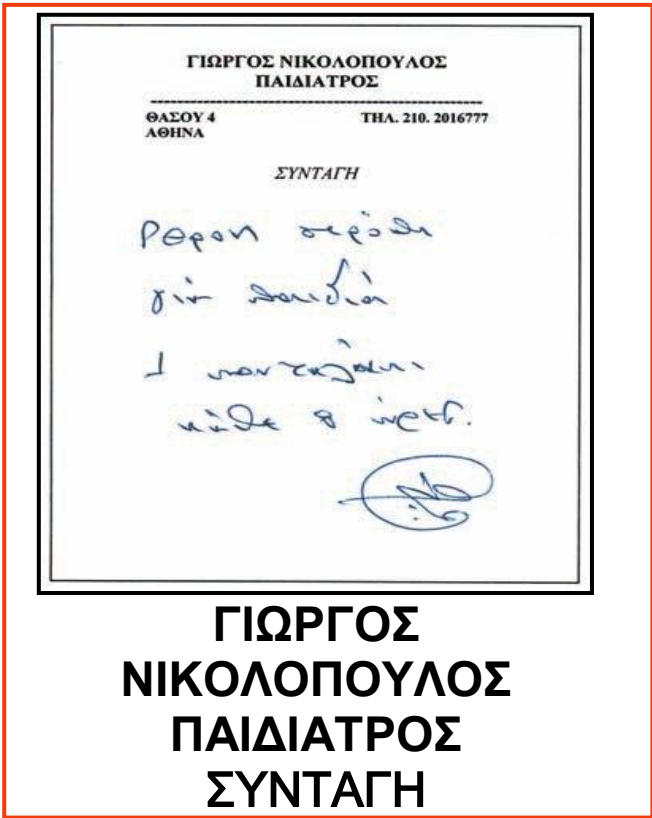 ΓΙΩΡΓΟΣ ΝΙΚΟΛΟΠΟΥΛΟΣ
ΠΑΙΔΙΑΤΡΟΣ
ΘΑΣΟΥ 4 ΤΗΛ. 210. 2016777
ΑΘΗΝΑ
ΣΥΝΤΑΓΗ
Depon σιρόπι
για παιδιά
1 κουταλάκι
κάθε 8 ώρες.
ΓΙΩΡΓΟΣ
ΝΙΚΟΛΟΠΟΥΛΟΣ
ΠΑΙΔΙΑΤΡΟΣ
ΣΥΝΤΑΓΗ